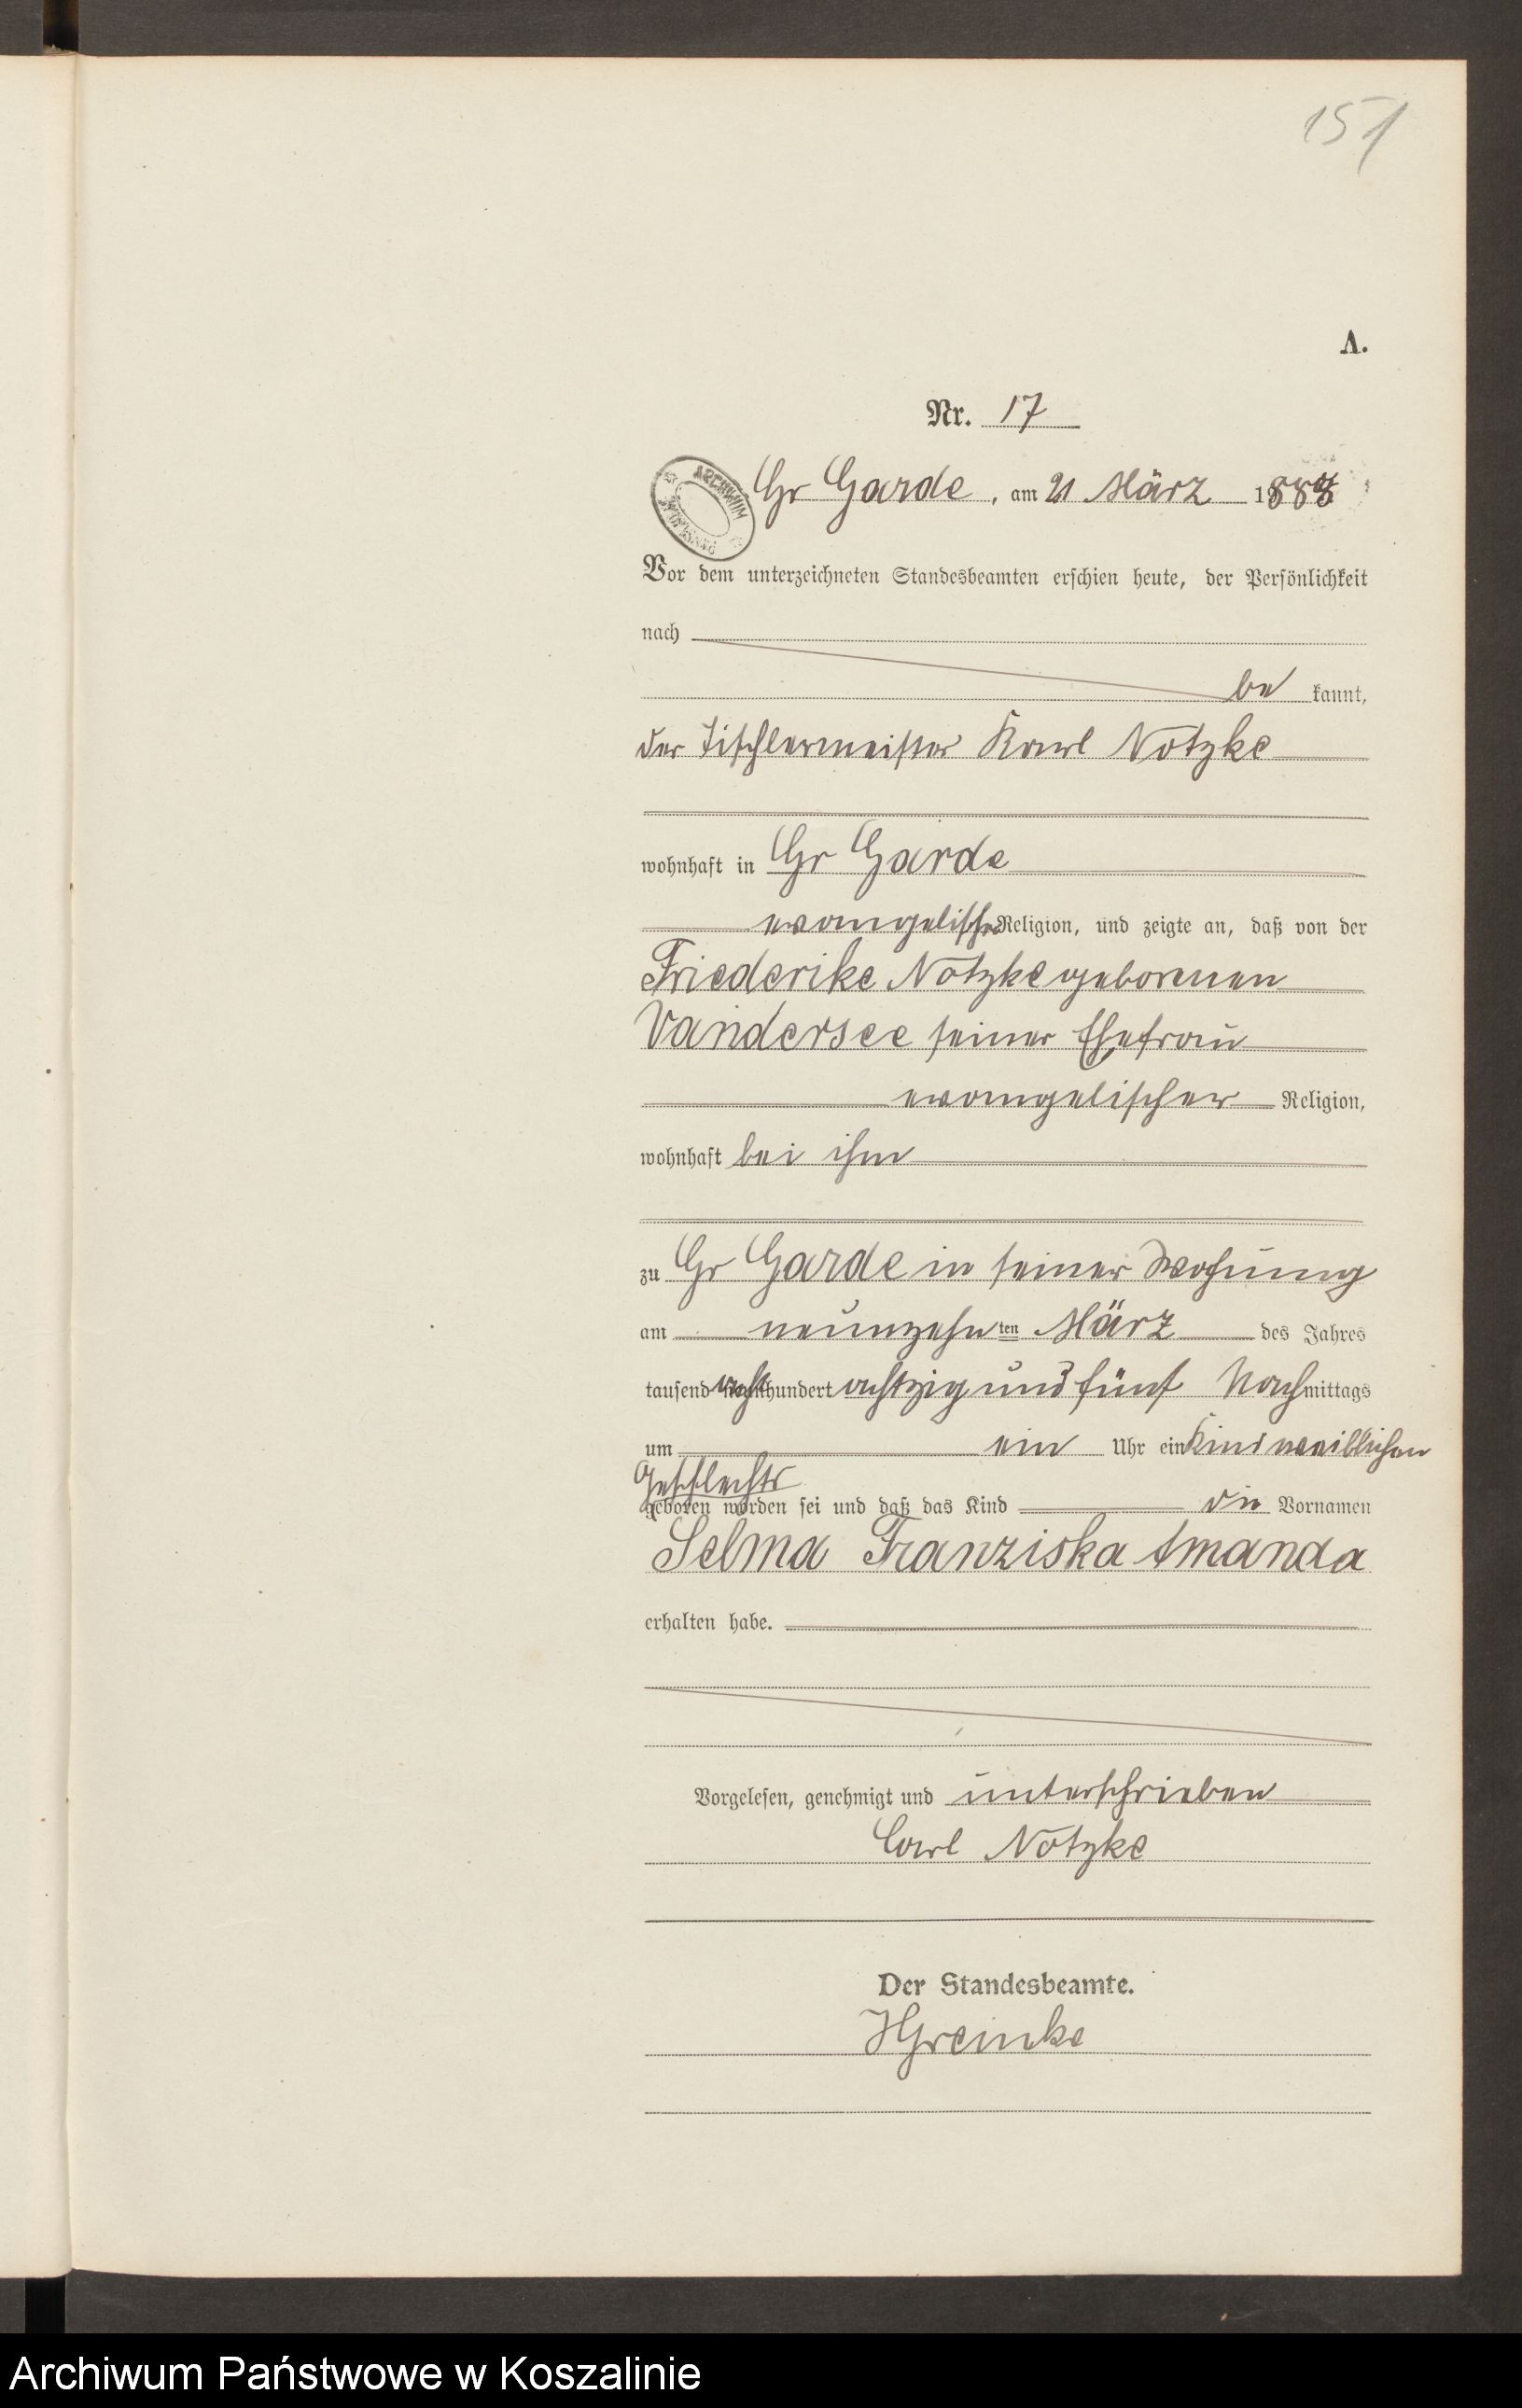 151
A.
Nr. 17
Gr Garde, am 21 März
ARCHIWUM
Vor dem unterzeichneten Standesbeamten erschien heute, der Persönlichkeit
nach
be kannt,
der Tischlermeister Karl Notzke
wohnhaft in Gr Garde
evangelischer Religion, und zeigte an, daß von der
Friederike Notzke geborenen
Vandersee seiner Ehefrau
evangelischer Religion,
wohnhaft bei ihm
zu Gr Garde in seiner Wohnung
am neunzehn ten März des Jahres
tausend acht hundert achtzig und fünf Nachmittags
um ein Uhr ein Kind weiblichen
Geschlechts
geboren worden sei und daß das Kind die Vornamen
Selma Franziska Amanda
erhalten habe.
Vorgelesen, genehmigt und unterschrieben
Carl Notzke
Der Standesbeamte.
HGreinke
Archiwum Państwowe w Koszalinie